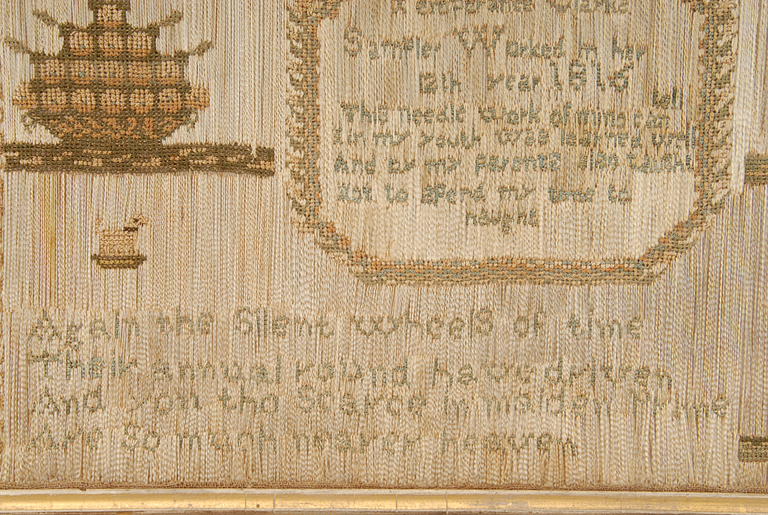 Clarke
Sampler Worked in her
12th year 1816
This needle work of mine can tell
I in my youth was learned well
And by my parents also taught
Not to spend my time to
naught
Again the Silent wheels of time
Their annual round have driven
And you tho scarce in maiden prime
Are So much nearer heaven